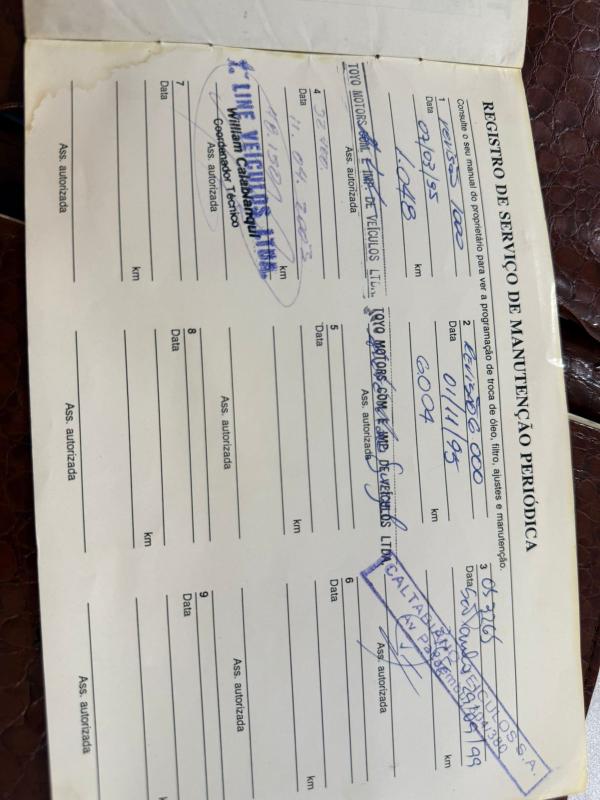 REGISTRO DE SERVIÇO DE MANUTENÇÃO PERIÓDICA
Consulte o seu manual do proprietário para ver a programação de troca de óleo, filtro, ajustes e manutenção.
1 REVISÃO 1000
Data 09/02/95
1.048 km
TOYO MOTORS COM. E IMP. DE VEÍCULOS LTDA.
Ass. autorizada
2 REVISÃO 6.000
Data 01/11/95
6004 km
TOYO MOTORS COM. E IMP. DE VEÍCULOS LTDA
Ass. autorizada
3
Data São Paulo 20/09/99
CALTABIANO VEÍCULOS S.A.
km
Ass. autorizada
4
Data 11.04.2003
km
LINE VEÍCULOS LTDA.
William Calablanqui
Coordenador Técnico
Ass. autorizada
5
Data
km
Ass. autorizada
6
Data
km
Ass. autorizada
7
Data
km
Ass. autorizada
8
Data
km
Ass. autorizada
9
Data
km